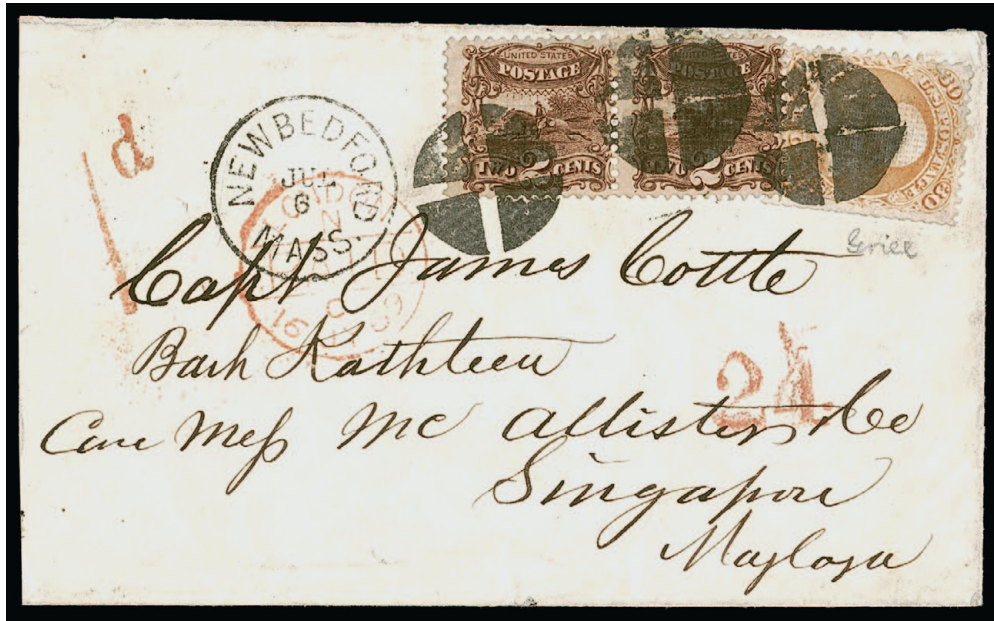 UNITED STATES
POSTAGE
TWO 2 CENTS
UNITED STATES
POSTAGE
TWO 2 CENTS
30 U.S. POSTAGE 30
d
1
NEW BEDFORD
JUL
6
MASS.
LONDON
16
69
Capt James Cottle
Bark Kathleen
24
Care Mess Mc Allister Co
Singapore
Maylaya